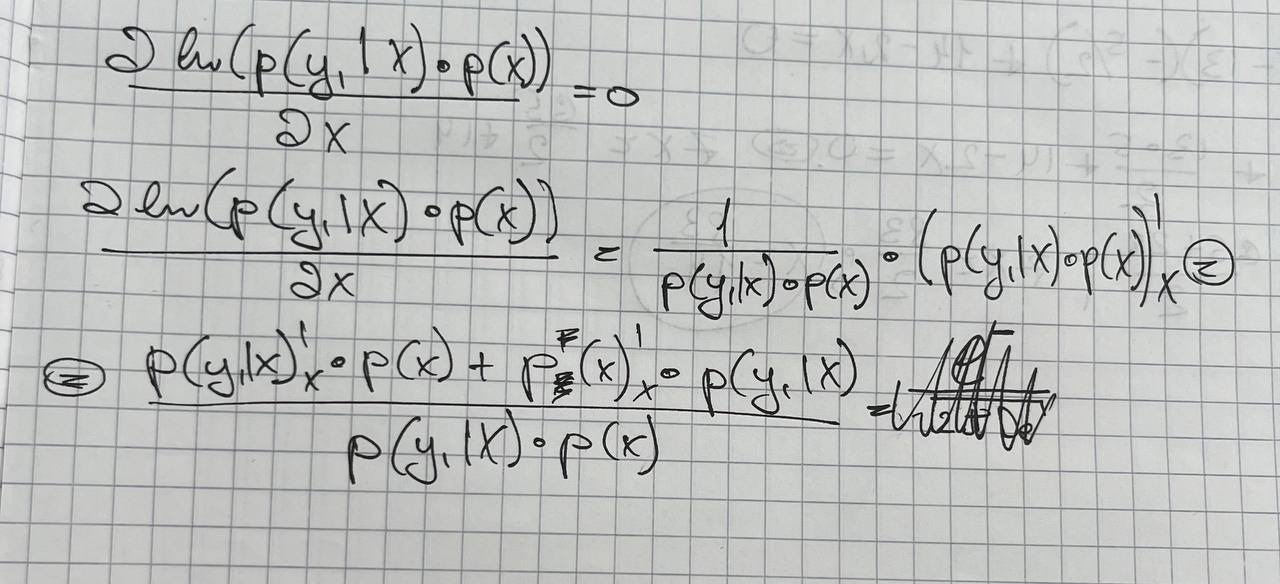 ∂ ln(p(y₁|x)∘p(x)) / ∂x = 0
∂ ln(p(y₁|x)∘p(x)) / ∂x = 1 / (p(y₁|x)∘p(x)) · (p(y₁|x)∘p(x))'ₓ ⊜
⊜ (p(y₁|x)'ₓ∘p(x) + p(x)'ₓ∘p(y₁|x)) / (p(y₁|x)∘p(x)) =